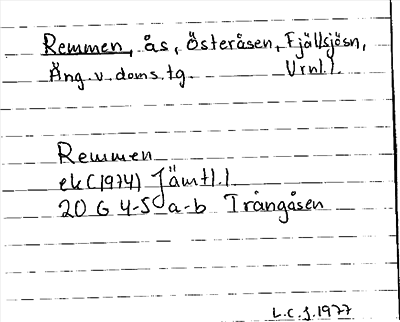 Remmen, ås, Österåsen, Fjällsjösn,
Äng.v.doms.tg. Vrnl.l.
Remmen
ek(1974) Jämtl.l
20 G 4-5 a-b Trångåsen
L.C.J.1977